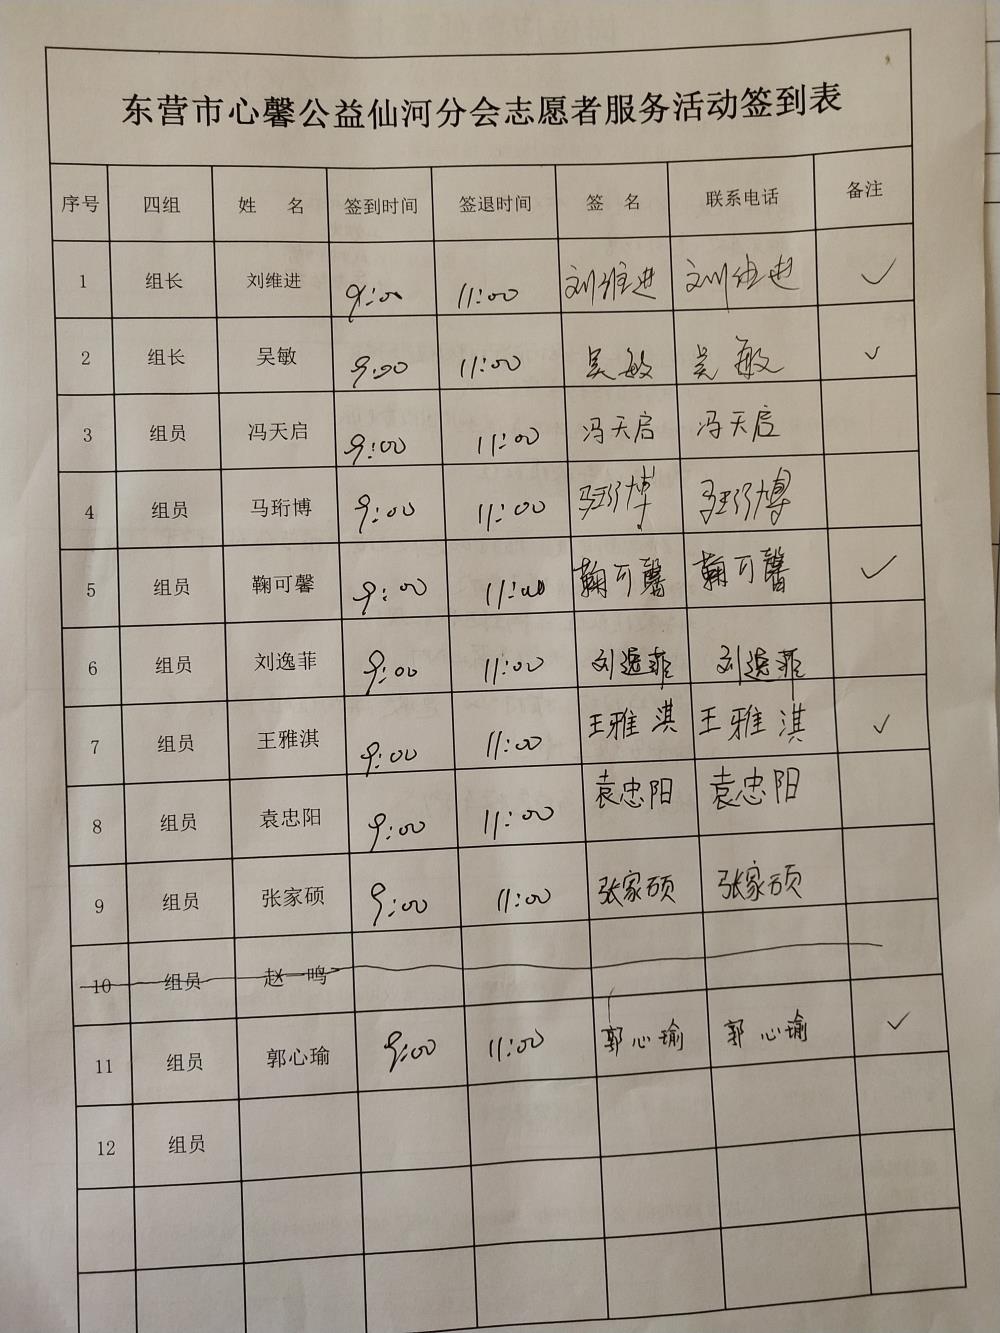 东营市心馨公益仙河分会志愿者服务活动签到表
序号 四组 姓 名 签到时间 签退时间 签 名 联系电话 备注
1 组长 刘维进 9:00 11:00 刘维进 刘维进 ✓
2 组长 吴敏 9:00 11:00 吴敏 吴敏 ✓
3 组员 冯天启 9:00 11:00 冯天启 冯天启
4 组员 马珩博 9:00 11:00 马珩博 马珩博
5 组员 鞠可馨 9:00 11:00 鞠可馨 鞠可馨 ✓
6 组员 刘逸菲 9:00 11:00 刘逸菲 刘逸菲
7 组员 王雅淇 9:00 11:00 王雅淇 王雅淇 ✓
8 组员 袁忠阳 9:00 11:00 袁忠阳 袁忠阳
9 组员 张家硕 9:00 11:00 张家硕 张家硕
10 组员 赵一鸣
11 组员 郭心瑜 9:00 11:00 郭心瑜 郭心瑜 ✓
12 组员